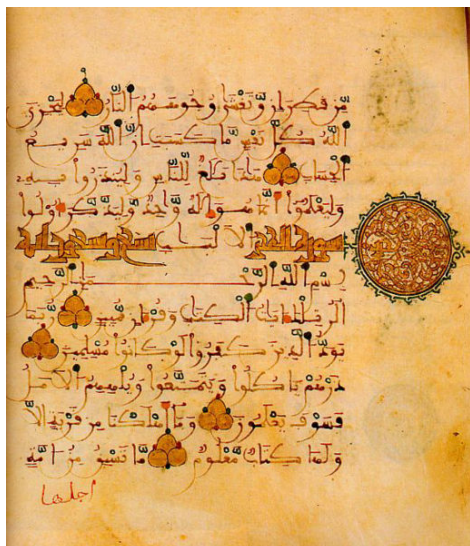 مِّن قَطِرَانٍ وَّتَغْشَىٰ وُجُوهَهُمُ النَّارُ لِيَجْزِيَ
اللَّهُ كُلَّ نَفْسٍ مَّا كَسَبَتْ إِنَّ اللَّهَ سَرِيعُ
الْحِسَابِ هَٰذَا بَلَٰغٌ لِّلنَّاسِ وَلِيُنذَرُوا بِهِ
وَلِيَعْلَمُوا أَنَّمَا هُوَ إِلَٰهٌ وَٰحِدٌ وَلِيَذَّكَّرَ أُولُوا
الْأَلْبَٰبِ
بِسْمِ اللَّهِ الرَّحْمَٰنِ الرَّحِيمِ
الر تِلْكَ ءَايَٰتُ الْكِتَٰبِ وَقُرْءَانٍ مُّبِينٍ رُّبَمَا
يَوَدُّ الَّذِينَ كَفَرُوا لَوْ كَانُوا مُسْلِمِينَ
ذَرْهُمْ يَأْكُلُوا وَيَتَمَتَّعُوا وَيُلْهِهِمُ الْأَمَلُ
فَسَوْفَ يَعْلَمُونَ وَمَا أَهْلَكْنَا مِن قَرْيَةٍ إِلَّا
وَلَهَا كِتَابٌ مَّعْلُومٌ مَّا تَسْبِقُ مِنْ أُمَّةٍ
اجلها